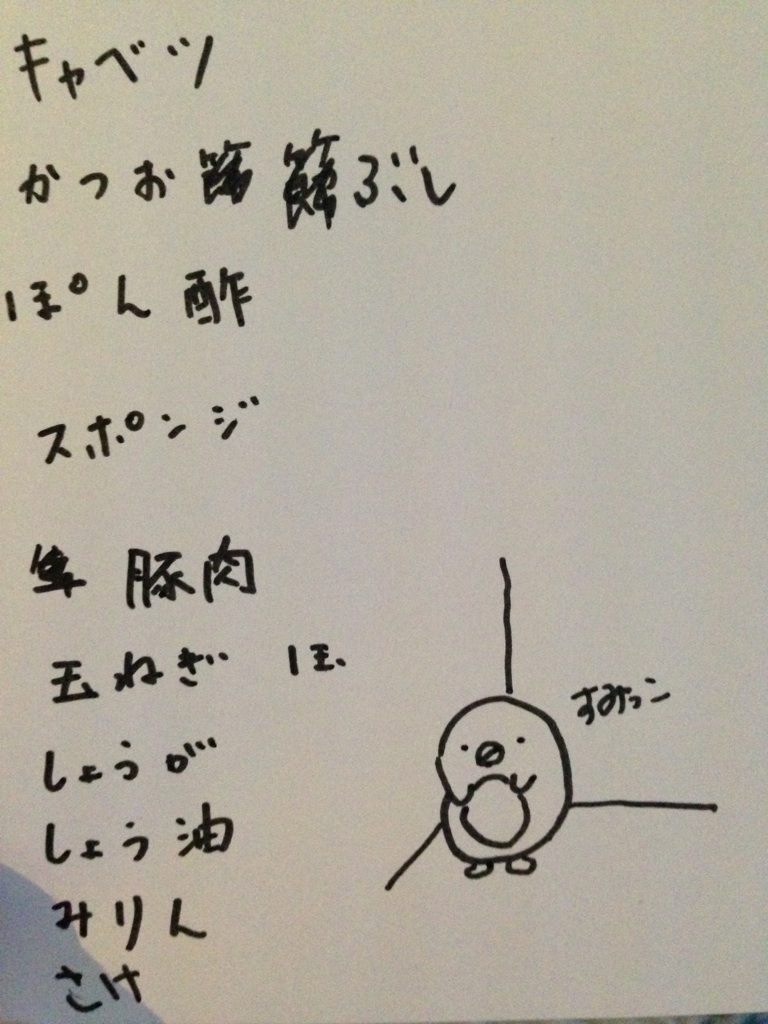 キャベツ
かつおぶし
ぽん酢
スポンジ
豚肉
玉ねぎ ほ
しょうが
しょう油
みりん
さけ
すみっコ